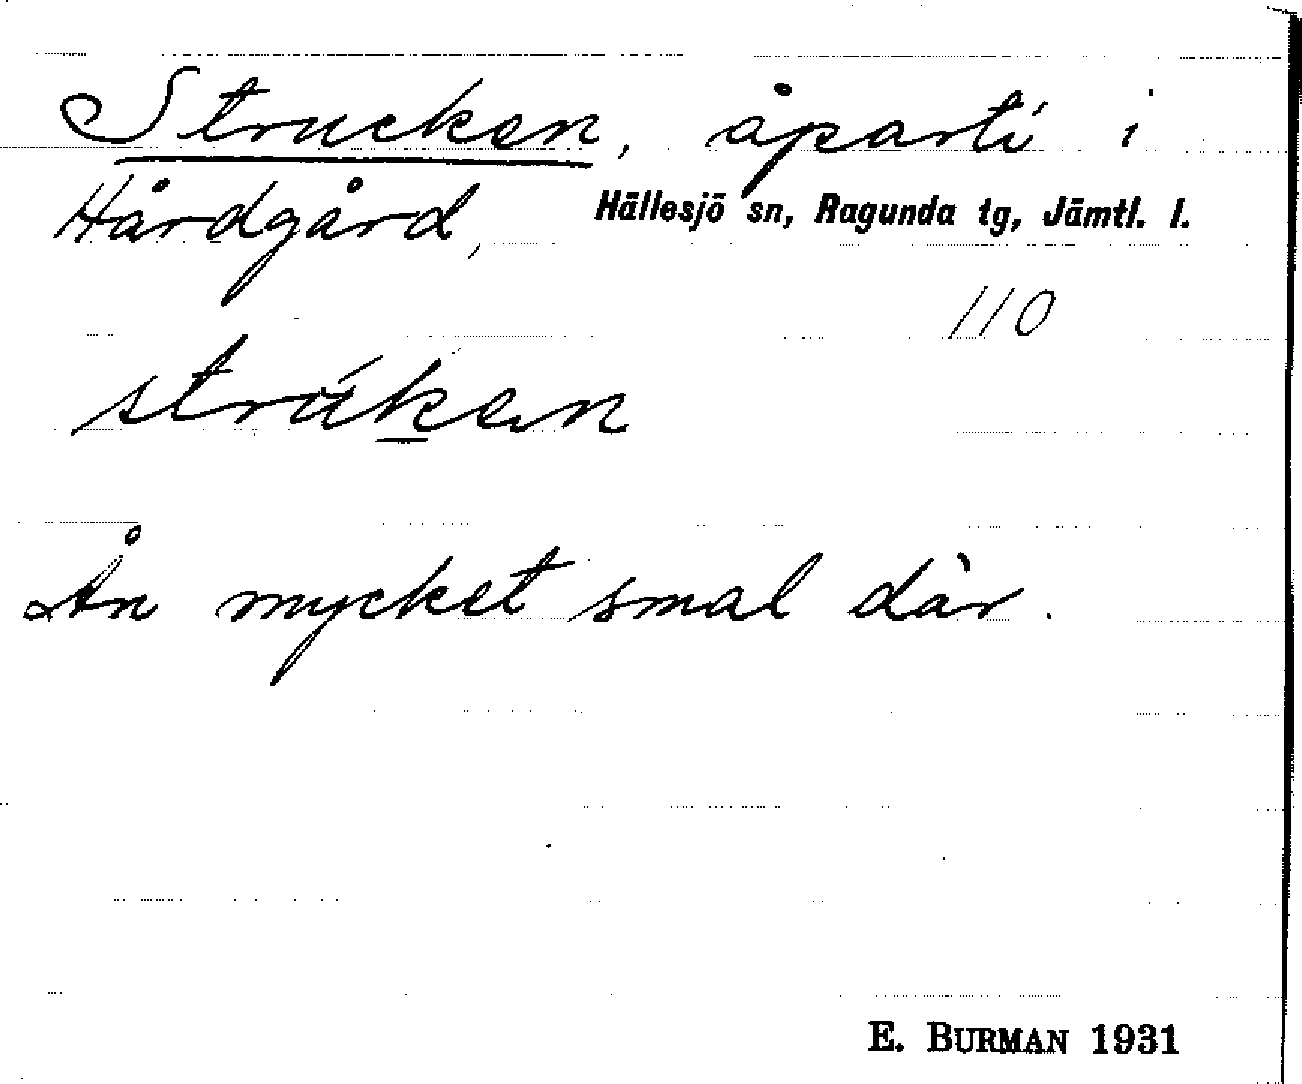 Strucken, åparti i
Hårdgård, Hällesjö sn, Ragunda tg, Jämtl. l.
110
strúken
Ån mycket smal där.
E. BURMAN 1931